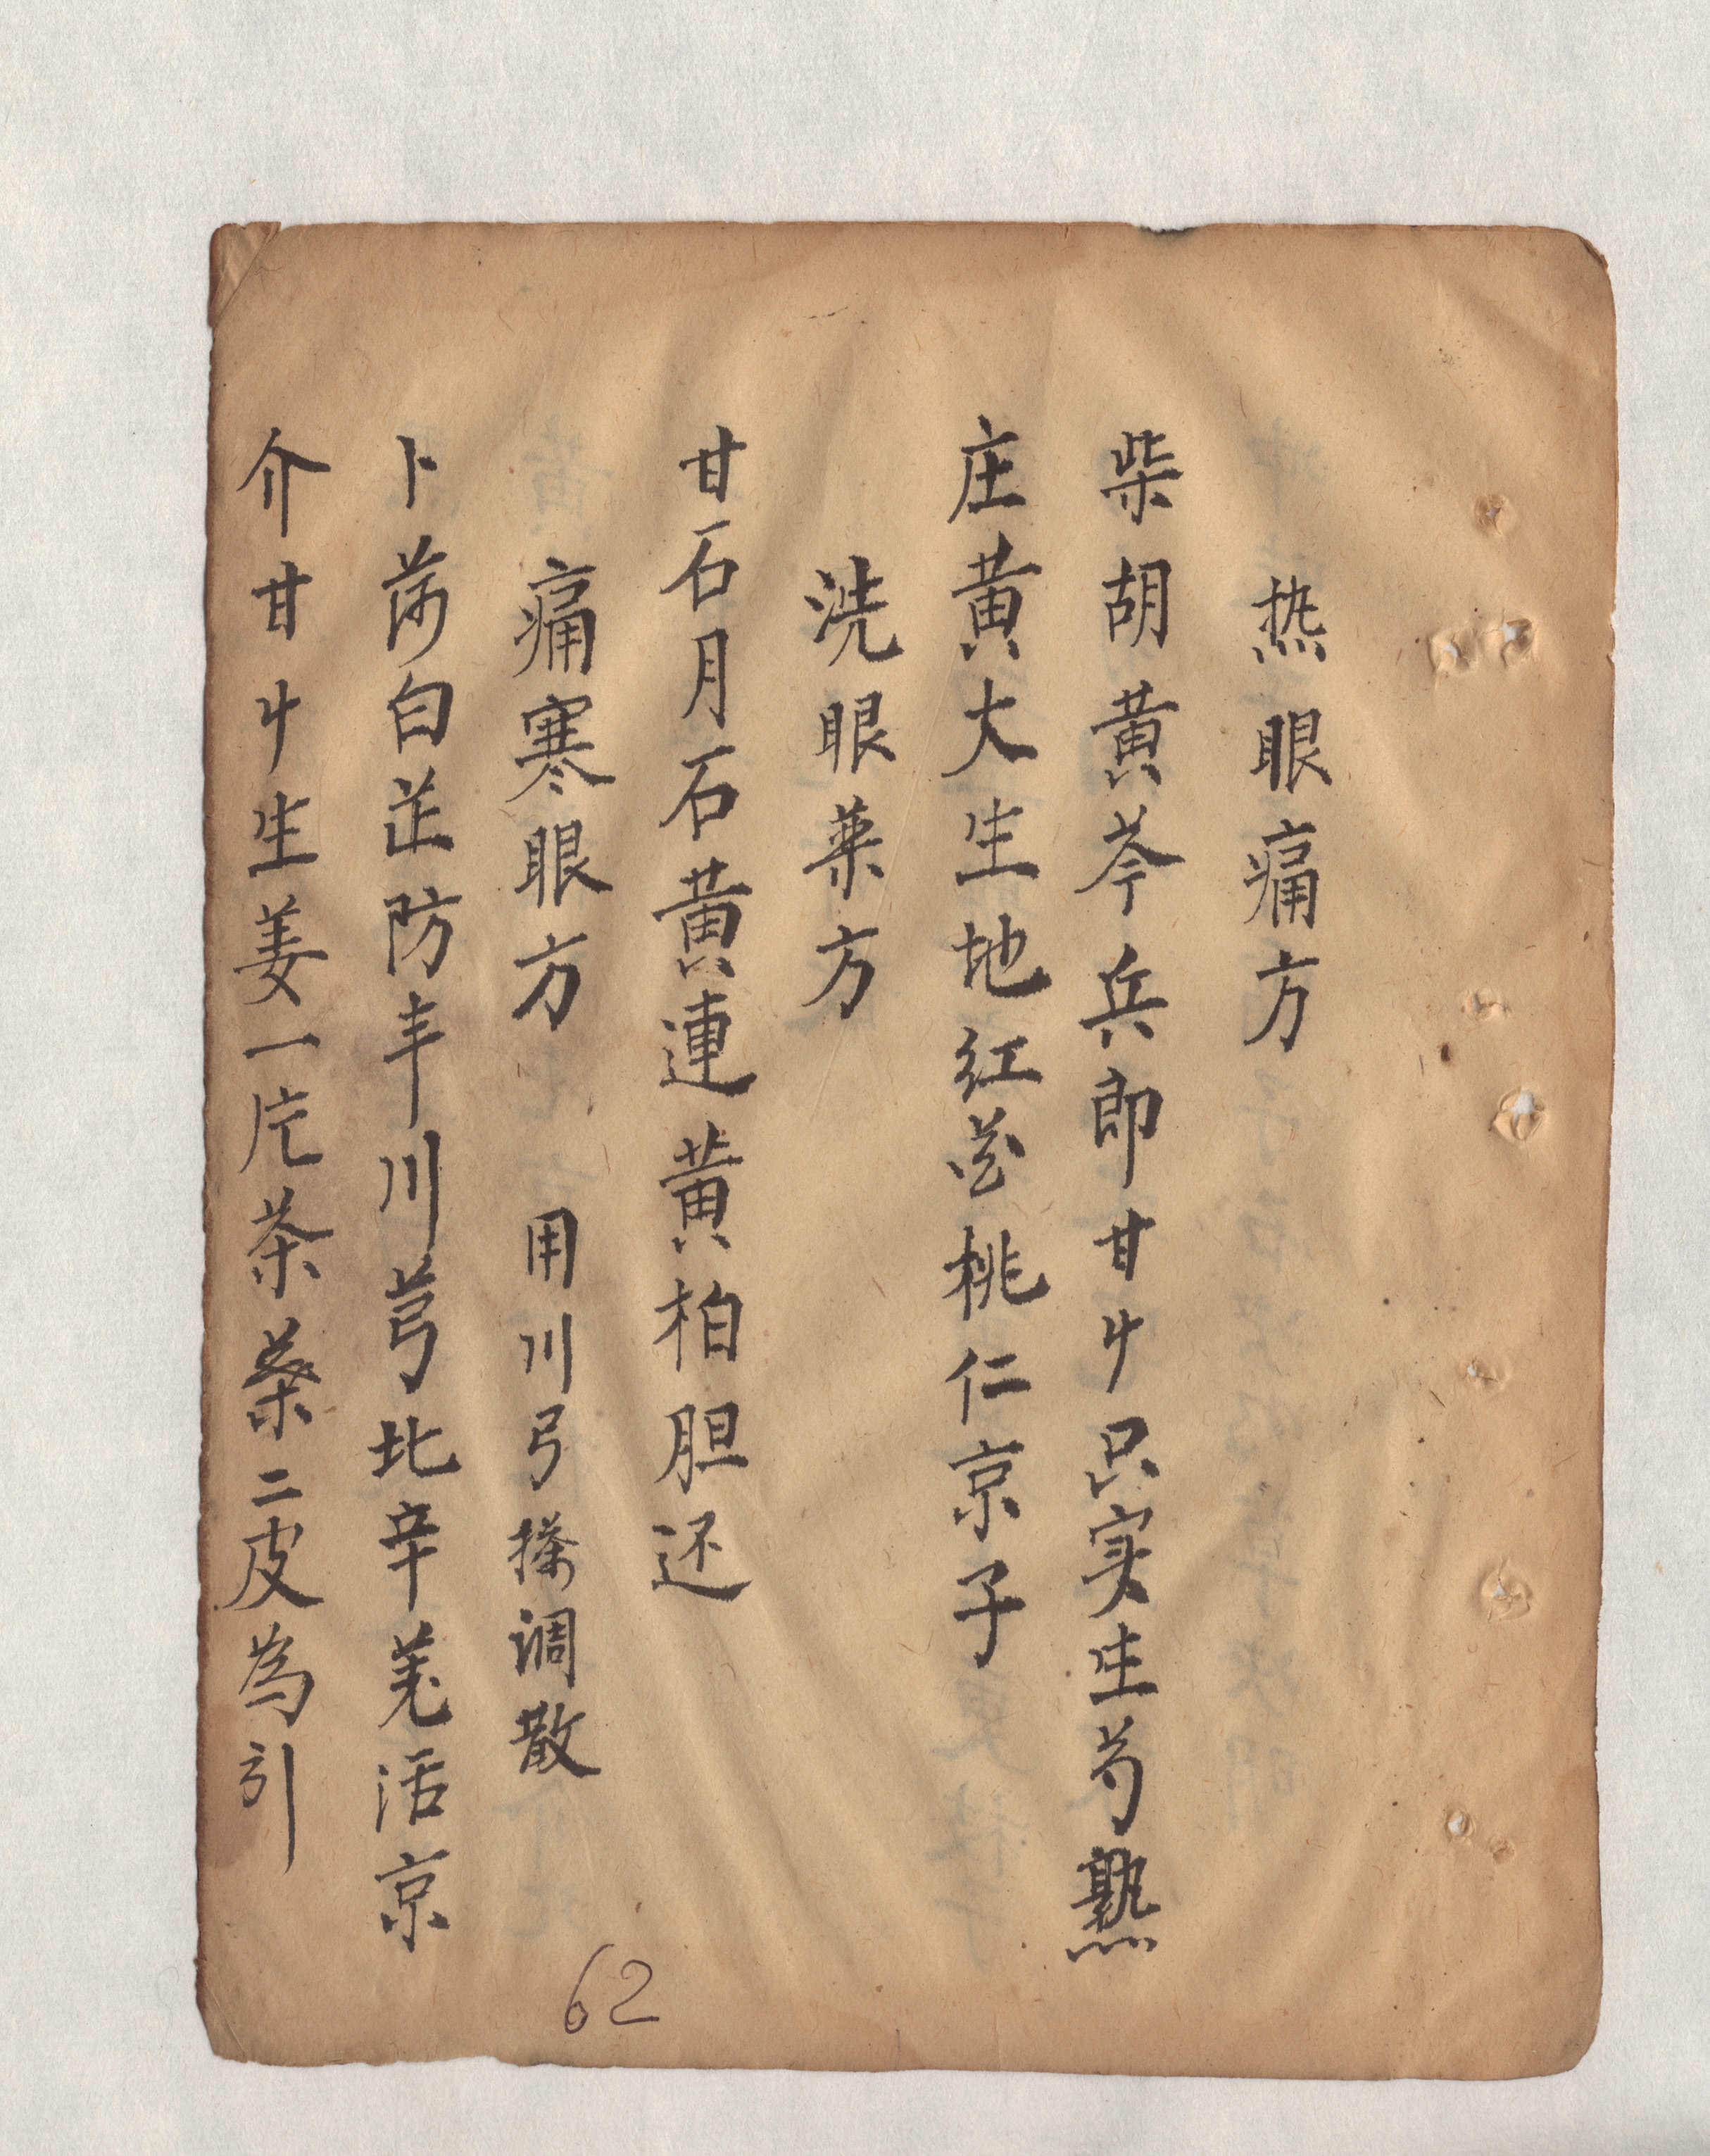 热眼痛方
柴胡黄芩兵郎甘廾只实生芍熟
庄黄大生地红花桃仁京子
洗眼药方
甘石月石黄連黄柏胆还
痛寒眼方 用川弓搽调散
卜荷白芷防丰川芎北辛羌活京
介甘廾生姜一片茶桑二皮為引
62